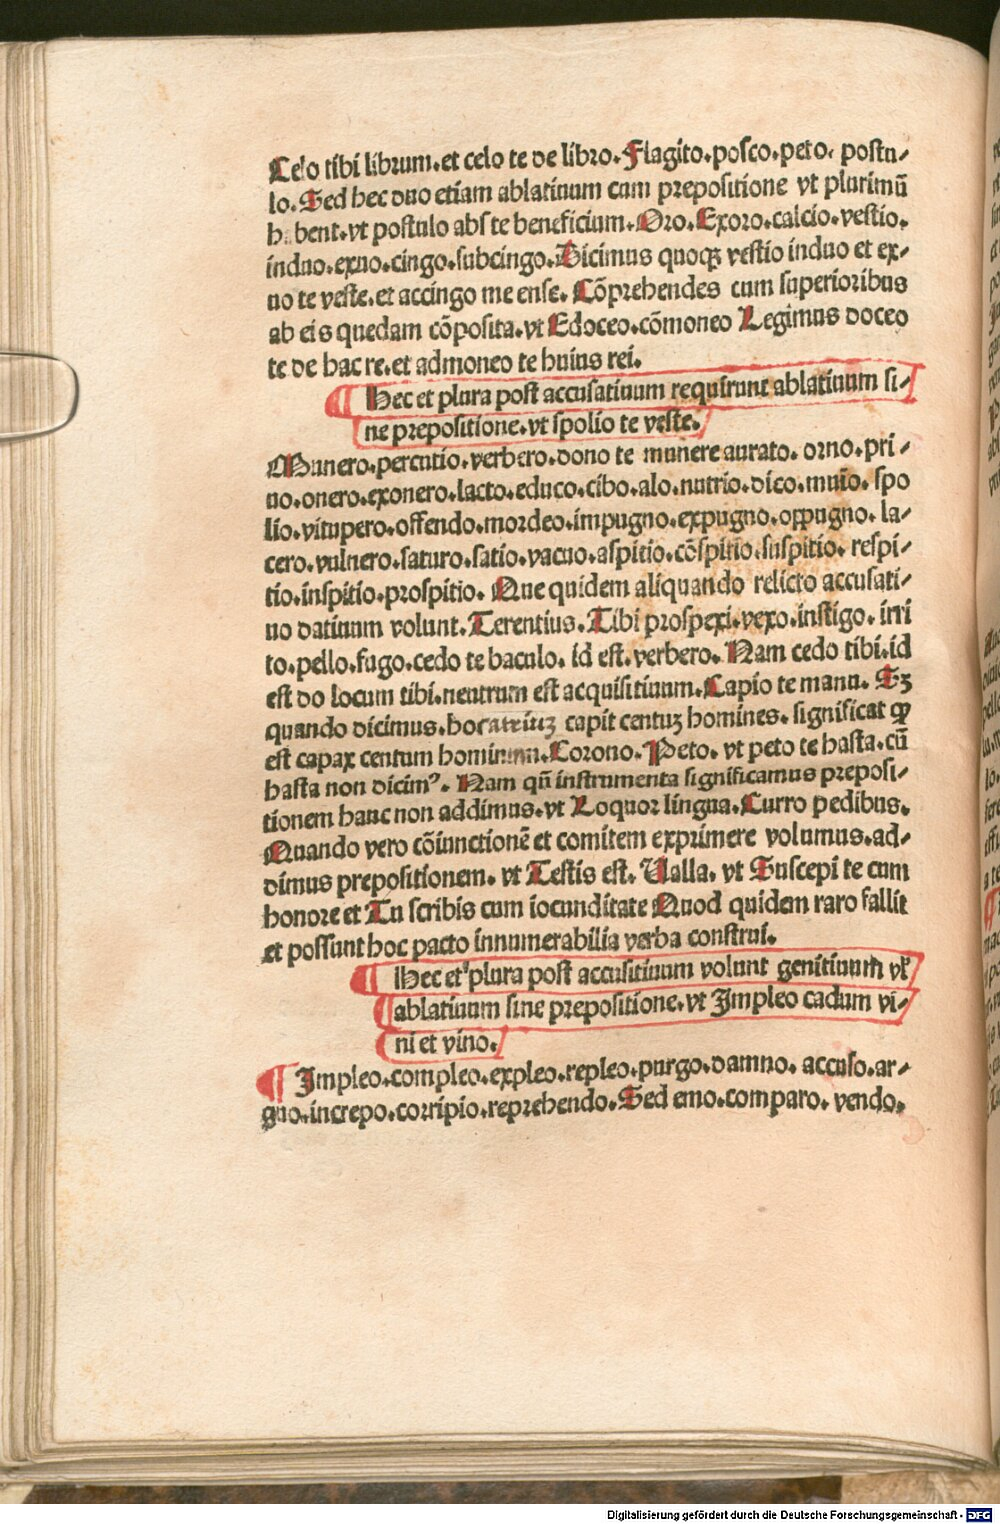 Celo tibi librum.et celo te de libro.Flagito.posco.peto. postu/
lo.Sed hec duo etiam ablatiuum cum prepositione vt plurimū
habent.vt postulo abs te beneficium.Oro.Exoro.calcio.vestio.
induo.exuo.cingo.subcingo.Dicimus quoqꝫ vestio induo et ex/
uo te veste.et accingo me ense. Cōprehendes cum superioribus
ab eis quedam cōposita.vt Edoceo.cōmoneo Legimus doceo
te de hac re.et admoneo te huius rei.
¶ Hec et plura post accusatiuum requirunt ablatiuum si/
ne prepositione.vt spolio te veste.
Munero.percutio.verbero.dono te munere aurato. orno.pri/
uo.onero.exonero.lacto.educo.cibo.alo.nutrio.dico.muīo.spo
lio.vitupero.offendo.mordeo.impugno.expugno.oppugno.la/
cero.vulnero.saturo.satio.vacuo.aspicio.cōspitio.suspitio. respi/
tio.inspitio.prospitio. Que quidem aliquando relicto accusati/
uo datiuum volunt.Terentius.Tibi prospexi.vexo.instigo.irri
to.pello.fugo.cedo te baculo. id est.verbero. Nam cedo tibi.id
est do locum tibi.neutrum est acquisitiuum.Capio te manu. Sꝫ
quando dicimus.hoc atriuꝫ capit centuꝫ homines. significat ꝙ
est capax centum hominum.Corono.Peto. vt peto te hasta.cū
hasta non dicimꝰ. Nam qn̄ instrumenta significamus preposi/
tionem hanc non addimus.vt Loquor lingua.Curro pedibus.
Quando vero cōiunctionē et comitem exprimere volumus.ad/
dimus prepositionem. vt Testis est. Ualla. vt Suscepi te cum
honore et Tu scribis cum iocunditate Quod quidem raro fallit
et possunt hoc pacto innumerabilia verba construi.
¶ Hec et plura post accusitiuum volunt genitiuum vl̕
ablatiuum sine prepositione.vt Impleo cadum vi/
ni et vino.
¶ Impleo.compleo.expleo.repleo.purgo.damno. accuso.ar/
guo.increpo.corripio.reprehendo.Sed emo.comparo. vendo.
Digitalisierung gefördert durch die Deutsche Forschungsgemeinschaft - DFG